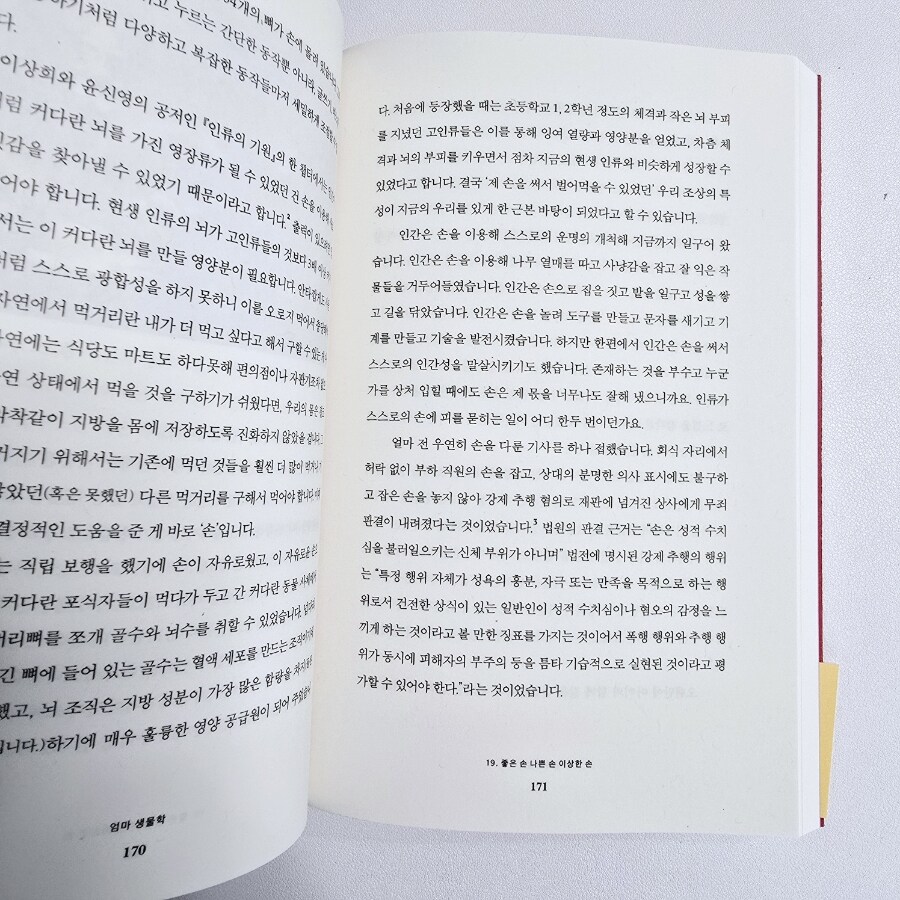 34개의, 뼈가 손에 몰려 있습니다
하고 누르는 간단한 동작뿐 아니라, 글쓰기
하기처럼 다양하고 복잡한 동작들마저 세밀하게 조절할
다.
이상희와 윤신영의 공저인 『인류의 기원』의 한 챕터에서는
럼 커다란 뇌를 가진 영장류가 될 수 있었던 건 손을 이용해
감을 찾아낼 수 있었기 때문이라고 합니다.² 출력이 있으려면
어야 합니다. 현생 인류의 뇌가 고인류들의 것보다 3배 이상
서는 이 커다란 뇌를 만들 영양분이 필요합니다. 안타깝게도
럼 스스로 광합성을 하지 못하니 이를 오로지 먹어서 충당해야
자연에서 먹거리란 내가 더 먹고 싶다고 해서 구할 수 있는
연에는 식당도 마트도 하다못해 편의점이나 자판기조차
연 상태에서 먹을 것을 구하기가 쉬웠다면, 우리의 몸은
착같이 지방을 몸에 저장하도록 진화하지 않았을 겁니다.
거지기 위해서는 기존에 먹던 것들을 훨씬 더 많이 먹거나
않았던(혹은 못했던) 다른 먹거리를 구해서 먹어야 합니다.
결정적인 도움을 준 게 바로 ‘손’입니다.
는 직립 보행을 했기에 손이 자유로웠고, 이 자유로운 손으
커다란 포식자들이 먹다가 두고 간 커다란 동물 사체에서
머리뼈를 쪼개 골수와 뇌수를 취할 수 있었습니다.
긴 뼈에 들어 있는 골수는 혈액 세포를 만드는 조직이기에
했고, 뇌 조직은 지방 성분이 가장 많은 함량을 차지
입니다.)하기에 매우 훌륭한 영양 공급원이 되어 주었습니
엄마 생물학
170
다. 처음에 등장했을 때는 초등학교 1, 2학년 정도의 체격과 작은 뇌 부피
를 지녔던 고인류들은 이를 통해 잉여 열량과 영양분을 얻었고, 차츰 체
격과 뇌의 부피를 키우면서 점차 지금의 현생 인류와 비슷하게 성장할 수
있었다고 합니다. 결국 ‘제 손을 써서 벌어먹을 수 있었던’ 우리 조상의 특
성이 지금의 우리를 있게 한 근본 바탕이 되었다고 할 수 있습니다.
인간은 손을 이용해 스스로의 운명의 개척해 지금까지 일구어 왔
습니다. 인간은 손을 이용해 나무 열매를 따고 사냥감을 잡고 잘 익은 작
물들을 거두어들였습니다. 인간은 손으로 집을 짓고 밭을 일구고 성을 쌓
고 길을 닦았습니다. 인간은 손을 놀려 도구를 만들고 문자를 새기고 기
계를 만들고 기술을 발전시켰습니다. 하지만 한편에서 인간은 손을 써서
스스로의 인간성을 말살시키기도 했습니다. 존재하는 것을 부수고 누군
가를 상처 입힐 때에도 손은 제 몫을 너무나도 잘해 냈으니까요. 인류가
스스로의 손에 피를 묻히는 일이 어디 한두 번이던가요.
얼마 전 우연히 손을 다룬 기사를 하나 접했습니다. 회식 자리에서
허락 없이 부하 직원의 손을 잡고, 상대의 분명한 의사 표시에도 불구하
고 잡은 손을 놓지 않아 강제 추행 혐의로 재판에 넘겨진 상사에게 무죄
판결이 내려졌다는 것이었습니다.³ 법원의 판결 근거는 “손은 성적 수치
심을 불러일으키는 신체 부위가 아니며” 법전에 명시된 강제 추행의 행위
는 “특정 행위 자체가 성욕의 흥분, 자극 또는 만족을 목적으로 하는 행
위로서 건전한 상식이 있는 일반인이 성적 수치심이나 혐오의 감정을 느
끼게 하는 것이라고 볼 만한 징표를 가지는 것이어서 폭행 행위와 추행 행
위가 동시에 피해자의 부주의 등을 틈타 기습적으로 실현된 것이라고 평
가할 수 있어야 한다.”라는 것이었습니다.
19. 좋은 손 나쁜 손 이상한 손
171